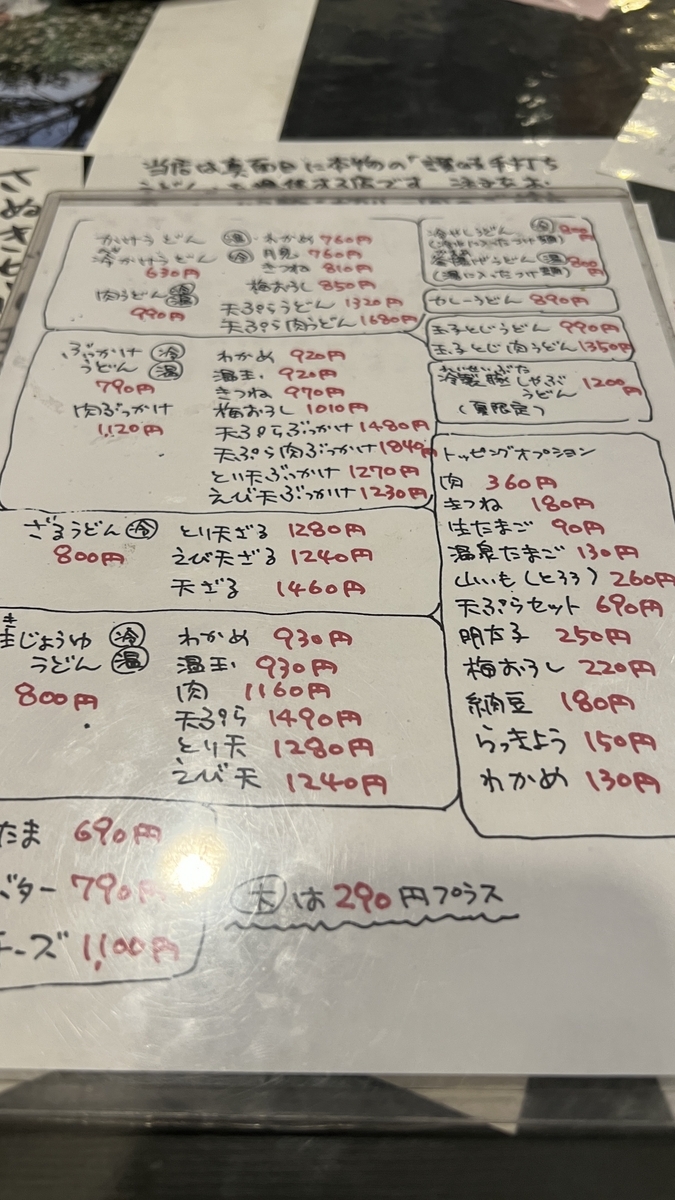 さぬき
当店は真面目に本物の「讃岐手打ち
うどん」を提供する店です
かけうどん 温
冷かけうどん 冷
630円
肉うどん 冷温
990円
わかめ 760円
月見 760円
きつね 810円
梅おろし 850円
天ぷらうどん 1320円
天ぷら肉うどん 1680円
冷やしうどん 冷 800円
うどん 温 800円
カレーうどん 890円
玉子とじうどん 990円
玉子とじ肉うどん 1350円
冷製豚しゃぶ
うどん
1200円
(夏限定)
ぶっかけ 冷
うどん 温
790円
肉ぶっかけ
1,120円
わかめ 920円
温玉 920円
きつね 970円
梅おろし 1010円
天ぷらぶっかけ 1480円
天ぷら肉ぶっかけ 1840円
とり天ぶっかけ 1270円
えび天ぶっかけ 1230円
ざるうどん 冷
800円
とり天ざる 1280円
えび天ざる 1240円
天ざる 1460円
じょうゆ 冷
うどん 温
800円
わかめ 930円
温玉 930円
肉 1160円
天ぷら 1490円
とり天 1280円
えび天 1240円
トッピングオプション
肉 360円
きつね 180円
生たまご 90円
温泉たまご 130円
山いも(とろろ) 260円
天ぷらセット 690円
明太子 250円
梅おろし 220円
納豆 180円
らっきょう 150円
わかめ 130円
たま 690円
バター 790円
チーズ 1,100円
大は290円プラス